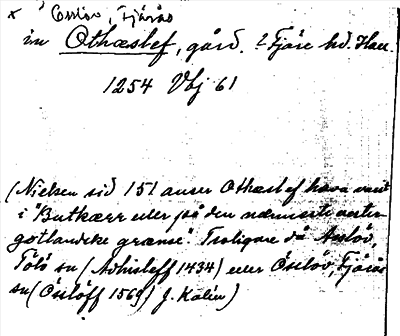 x Össlöv, Fjärås
in Othæslef, gård. ? Fjäre hd. Hall.
1254 Vhj 61
(Nielsen sid 151 anser Othæslef hava varit
i "Butkærr eller på den nærmeste vester-
gotlandske grænse". Troligare då Anslöv,
Tölö sn (Adhisleff 1434) eller Össlöv, Fjärås
sn (Öslöff 1569) J. Kalén)